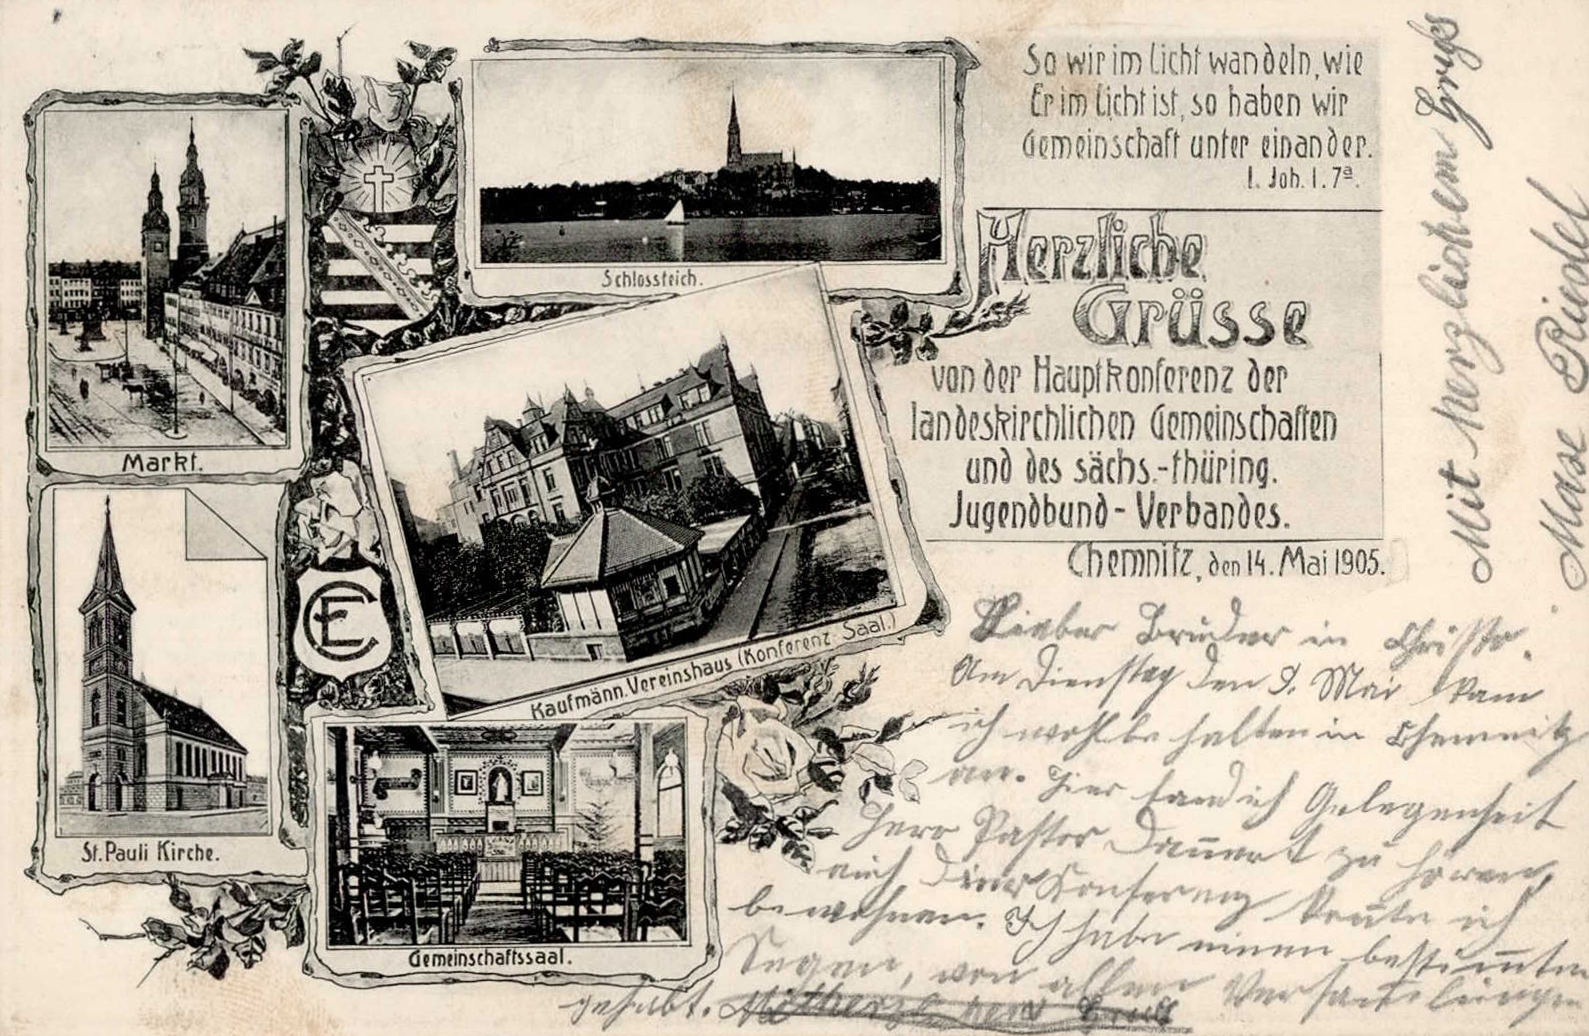 So wir im Licht wandeln, wie
Er im Licht ist, so haben wir
Gemeinschaft unter einander.
1. Joh. 1. 7a.
Herzliche
Grüsse
von der Hauptkonferenz der
landeskirchlichen Gemeinschaften
und des sächs.-thüring.
Jugendbund-Verbandes.
Chemnitz, den 14. Mai 1905.
Schlossteich.
Markt.
CE
Kaufmänn. Vereinshaus (Konferenz-Saal.)
St. Pauli Kirche.
Gemeinschaftssaal.
Lieber Bruder in Christo.
Am Dienstag den 9. Mai kam
ich wohlbehalten in Chemnitz
an. Hier fand ich Gelegenheit
Herr Pastor zu hören,
auch dieser Konferenz konnte ich
beiwohnen. Ich habe einen bestimmten
Segen, von allen Versammlungen
gehabt.
Mit herzlichem Gruss
Riedel